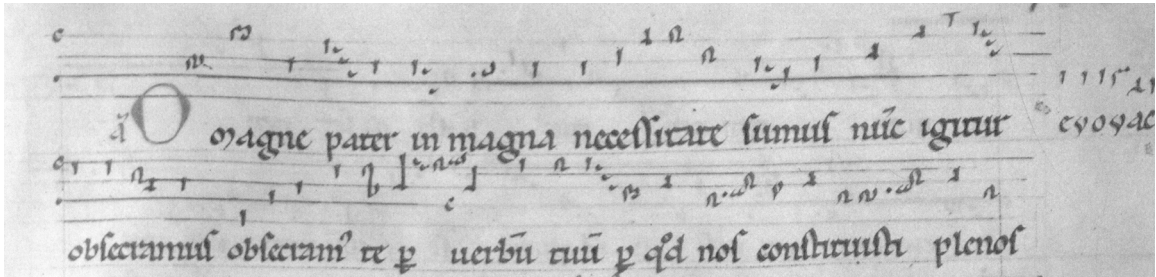 ā O magne pater in magna necessitate sumus nūc igitur evovae
obsecramus obsecram᷒ te ꝑ uerbū tuū ꝑ qͦd nos constituisti plenos